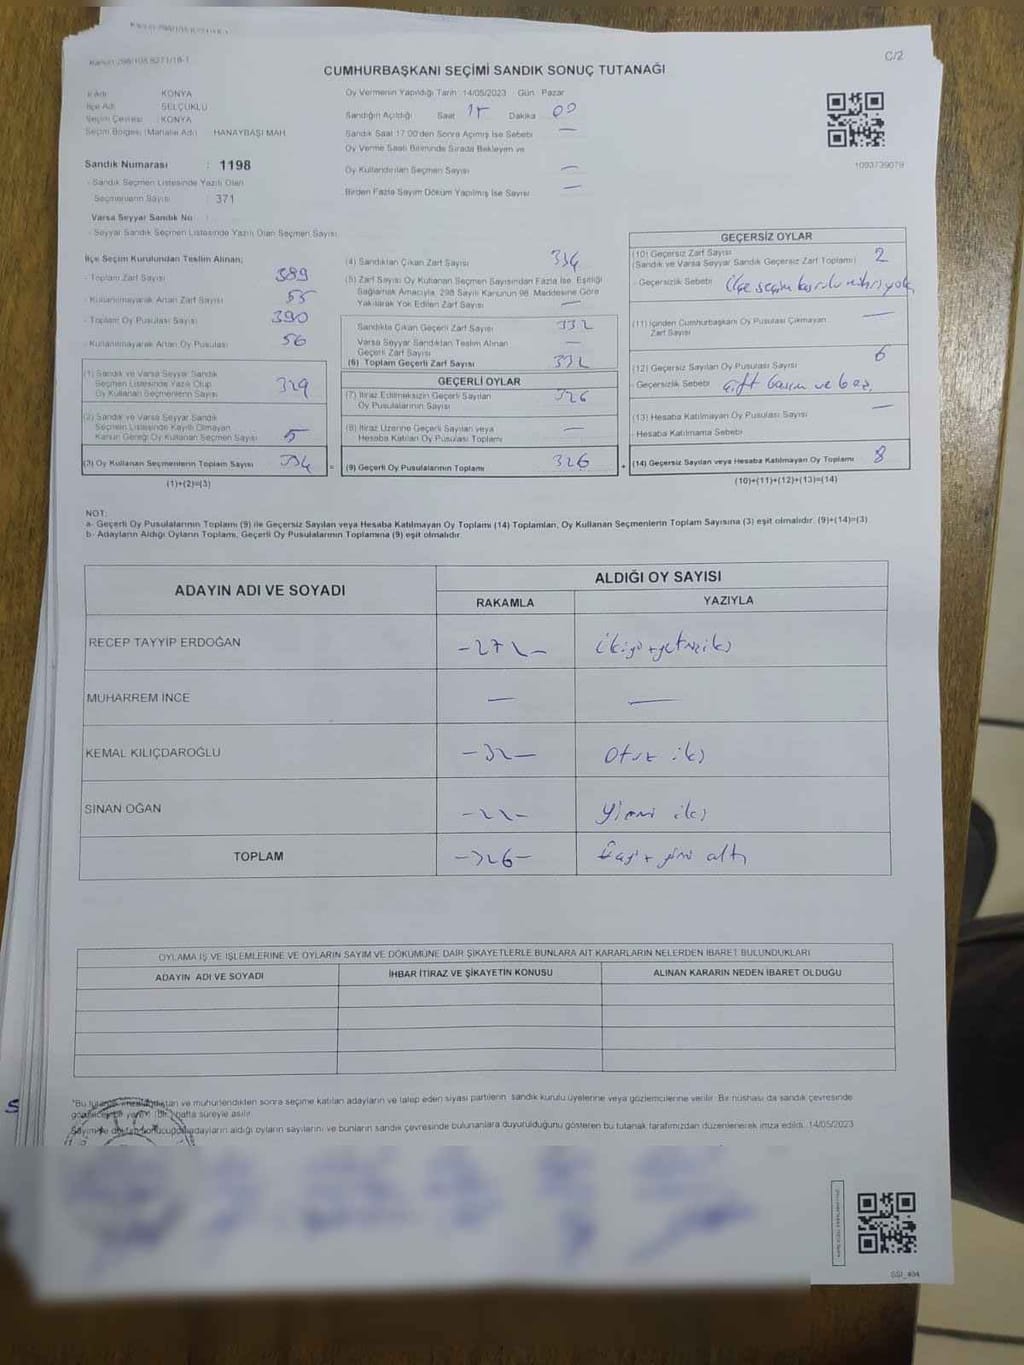 C/2
CUMHURBAŞKANI SEÇİMİ SANDIK SONUÇ TUTANAĞI
İl Adı : KONYA
İlçe Adı : SELÇUKLU
Seçim Çevresi : KONYA
Seçim Bölgesi (Mahalle Adı) : HANAYBAŞI MAH.
Sandık Numarası : 1198
- Sandık Seçmen Listesinde Yazılı Olan
Seçmenlerin Sayısı : 371
Varsa Seyyar Sandık No :
- Seyyar Sandık Seçmen Listesinde Yazılı Olan Seçmen Sayısı
Oy Vermenin Yapıldığı Tarih : 14/05/2023 Gün : Pazar
Sandığın Açıldığı Saat 17 Dakika 00
Sandık Saat 17:00'den Sonra Açılmış İse Sebebi —
Oy Verme Saati Bitiminde Sırada Bekleyen ve
Oy Kullandırılan Seçmen Sayısı —
Birden Fazla Sayım Döküm Yapılmış İse Sayısı —
1093739079
İlçe Seçim Kurulundan Teslim Alınan;
- Toplam Zarf Sayısı 389
- Kullanılmayarak Artan Zarf Sayısı 55
- Toplam Oy Pusulası Sayısı 390
- Kullanılmayarak Artan Oy Pusulası 56
(1) Sandık ve Varsa Seyyar Sandık
Seçmen Listesinde Yazılı Olup
Oy Kullanan Seçmenlerin Sayısı 329
(2) Sandık ve Varsa Seyyar Sandık
Seçmen Listesinde Kayıtlı Olmayan
Kanun Gereği Oy Kullanan Seçmen Sayısı 5
(3) Oy Kullanan Seçmenlerin Toplam Sayısı 334
(1)+(2)=(3)
(4) Sandıktan Çıkan Zarf Sayısı 334
(5) Zarf Sayısı Oy Kullanan Seçmen Sayısından Fazla İse, Eşitliği
Sağlamak Amacıyla, 298 Sayılı Kanunun 98. Maddesine Göre
Yakılarak Yok Edilen Zarf Sayısı —
Sandıkta Çıkan Geçerli Zarf Sayısı 332
Varsa Seyyar Sandıktan Teslim Alınan
Geçerli Zarf Sayısı —
(6) Toplam Geçerli Zarf Sayısı 332
GEÇERLİ OYLAR
(7) İtiraz Edilmeksizin Geçerli Sayılan
Oy Pusulalarının Sayısı 326
(8) İtiraz Üzerine Geçerli Sayılan veya
Hesaba Katılan Oy Pusulası Toplamı —
= (9) Geçerli Oy Pusulalarının Toplamı 326
GEÇERSİZ OYLAR
(10) Geçersiz Zarf Sayısı
(Sandık ve Varsa Seyyar Sandık Geçersiz Zarf Toplamı) 2
- Geçersizlik Sebebi : ilçe seçim kurulu mührü yok
(11) İçinden Cumhurbaşkanı Oy Pusulası Çıkmayan
Zarf Sayısı —
(12) Geçersiz Sayılan Oy Pusulası Sayısı 6
- Geçersizlik Sebebi : çift basım ve boş
(13) Hesaba Katılmayan Oy Pusulası Sayısı —
- Hesaba Katılmama Sebebi
+ (14) Geçersiz Sayılan veya Hesaba Katılmayan Oy Toplamı 8
(10)+(11)+(12)+(13)=(14)
NOT:
a- Geçerli Oy Pusulalarının Toplamı (9) ile Geçersiz Sayılan veya Hesaba Katılmayan Oy Toplamı (14) Toplamları, Oy Kullanan Seçmenlerin Toplam Sayısına (3) eşit olmalıdır. (9)+(14)=(3)
b- Adayların Aldığı Oyların Toplamı, Geçerli Oy Pusulalarının Toplamına (9) eşit olmalıdır.
ADAYIN ADI VE SOYADI ALDIĞI OY SAYISI
RAKAMLA YAZIYLA
RECEP TAYYİP ERDOĞAN -272- ikiyüzyetmişiki
MUHARREM İNCE — —
KEMAL KILIÇDAROĞLU -32- Otuz iki
SİNAN OĞAN -22- Yirmi iki
TOPLAM -326- Üçyüz yirmi altı
OYLAMA İŞ VE İŞLEMLERİNE VE OYLARIN SAYIM VE DÖKÜMÜNE DAİR ŞİKAYETLERLE BUNLARA AİT KARARLARIN NELERDEN İBARET BULUNDUKLARI
ADAYIN ADI VE SOYADI İHBAR İTİRAZ VE ŞİKAYETİN KONUSU ALINAN KARARIN NEDEN İBARET OLDUĞU
ve mühürlendikten sonra seçime katılan adayların ve talep eden siyasi partilerin sandık kurulu üyelerine veya gözlemcilerine verilir. Bir nüshası da sandık çevresinde
hafta süreyle asılır.
adayların aldığı oyların sayılarını ve bunların sandık çevresinde bulunanlara duyurulduğunu gösteren bu tutanak tarafımızdan düzenlenerek imza edildi. 14/05/2023